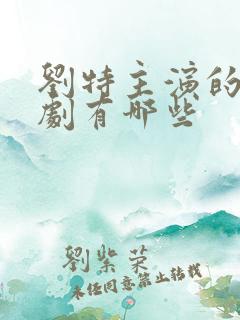 劉特主演的
劇有哪些
劉紫荣
未经同意禁止转载